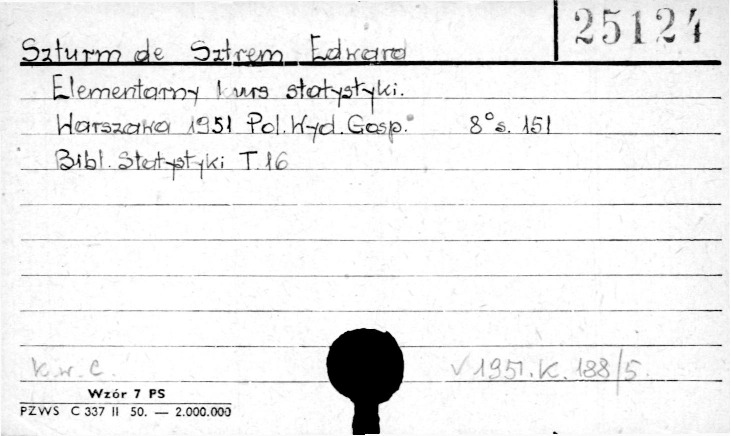 25124
Szturm de Sztrem Edward
Elementarny kurs statystyki.
Warszawa 1951 Pol.Wyd.Gosp. 8° s. 151
Bibl. Statystyki T.16
K.w.C. √ 1951.K.188/5.
Wzór 7 PS
PZWS C 337 II 50. — 2.000.000